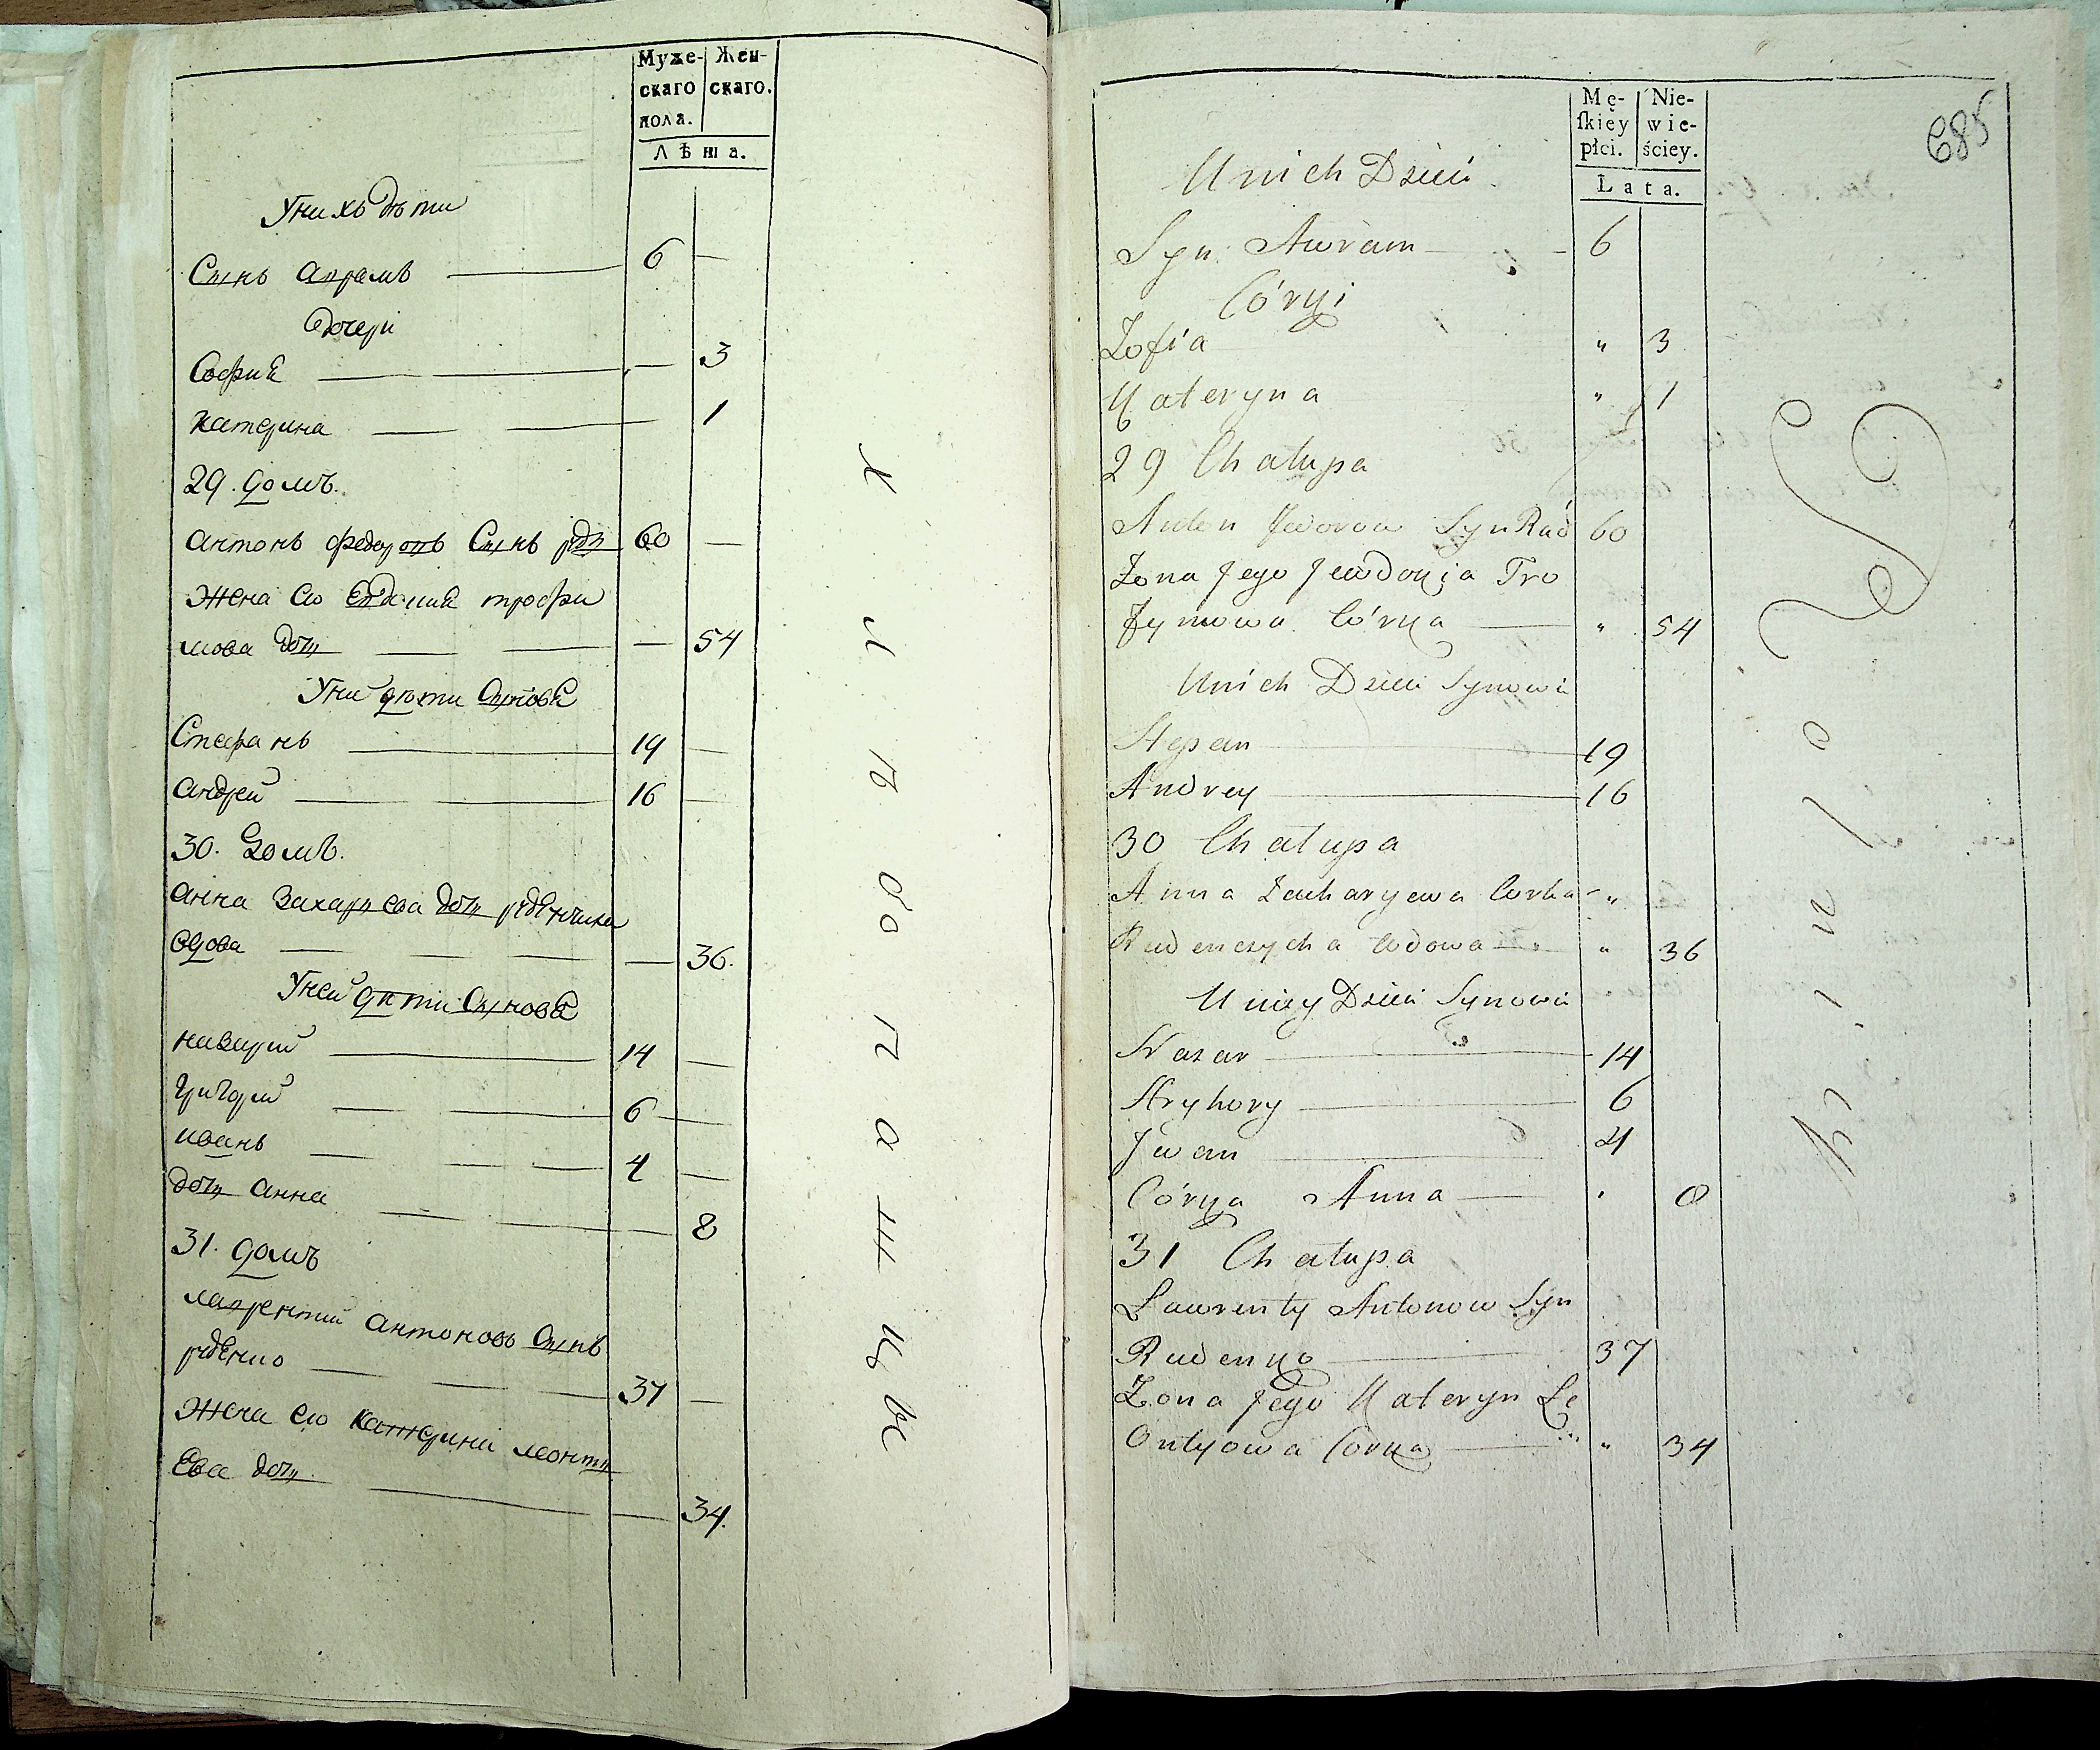 Муже-
скаго
пола.
Жен-
скаго.
Лѣта.
У нихъ дѣти
Сынъ аврамъ 6 —
Дочери
София — 3
катерина — 1
29. домъ.
антонъ федоровъ Сынъ 60 —
жена его Евдокия трофи
мова дочь — 54
У них дѣти Сыновя
Стефанъ 19 —
андрей 16 —
30. домъ.
анна захарьева дочь руденчиха
вдова — 36.
У ней дѣти Сыновя
назарий 14 —
григорий 6 —
иванъ 4 —
дочь анна 8
31. домъ
лаврентий антоновъ Сынъ
руденко 37 —
жена его катерина леонть
Ева дочь — 34.
хлѣбопашцы
685
Mę-
ſkiey
płci.
Nie-
wie-
ściey.
Lata.
U nich Dzieci
Syn Awram 6
Córki
Zofia " 3
Kateryna " 1
29 Chałupa
Anton Fedorow Syn Rud 60
Żona Jego Jewdokia Tro
fymowa Córka " 54
U nich Dzieci Synowie
Stepan 19
Andrey 16
30 Chałupa
Anna Zacharyewa Corka "
Rudenczycha wdowa " 36
U niey Dzieci Synowie
Nazar 14
Hryhory 6
Jwan 4
Córka Anna " 8
31 Chałupa
Ławrenty Antonow Syn
Rudenko 37
Żona Jego Kateryn Łe
Ontyowa Corka " 34
Rolnicy